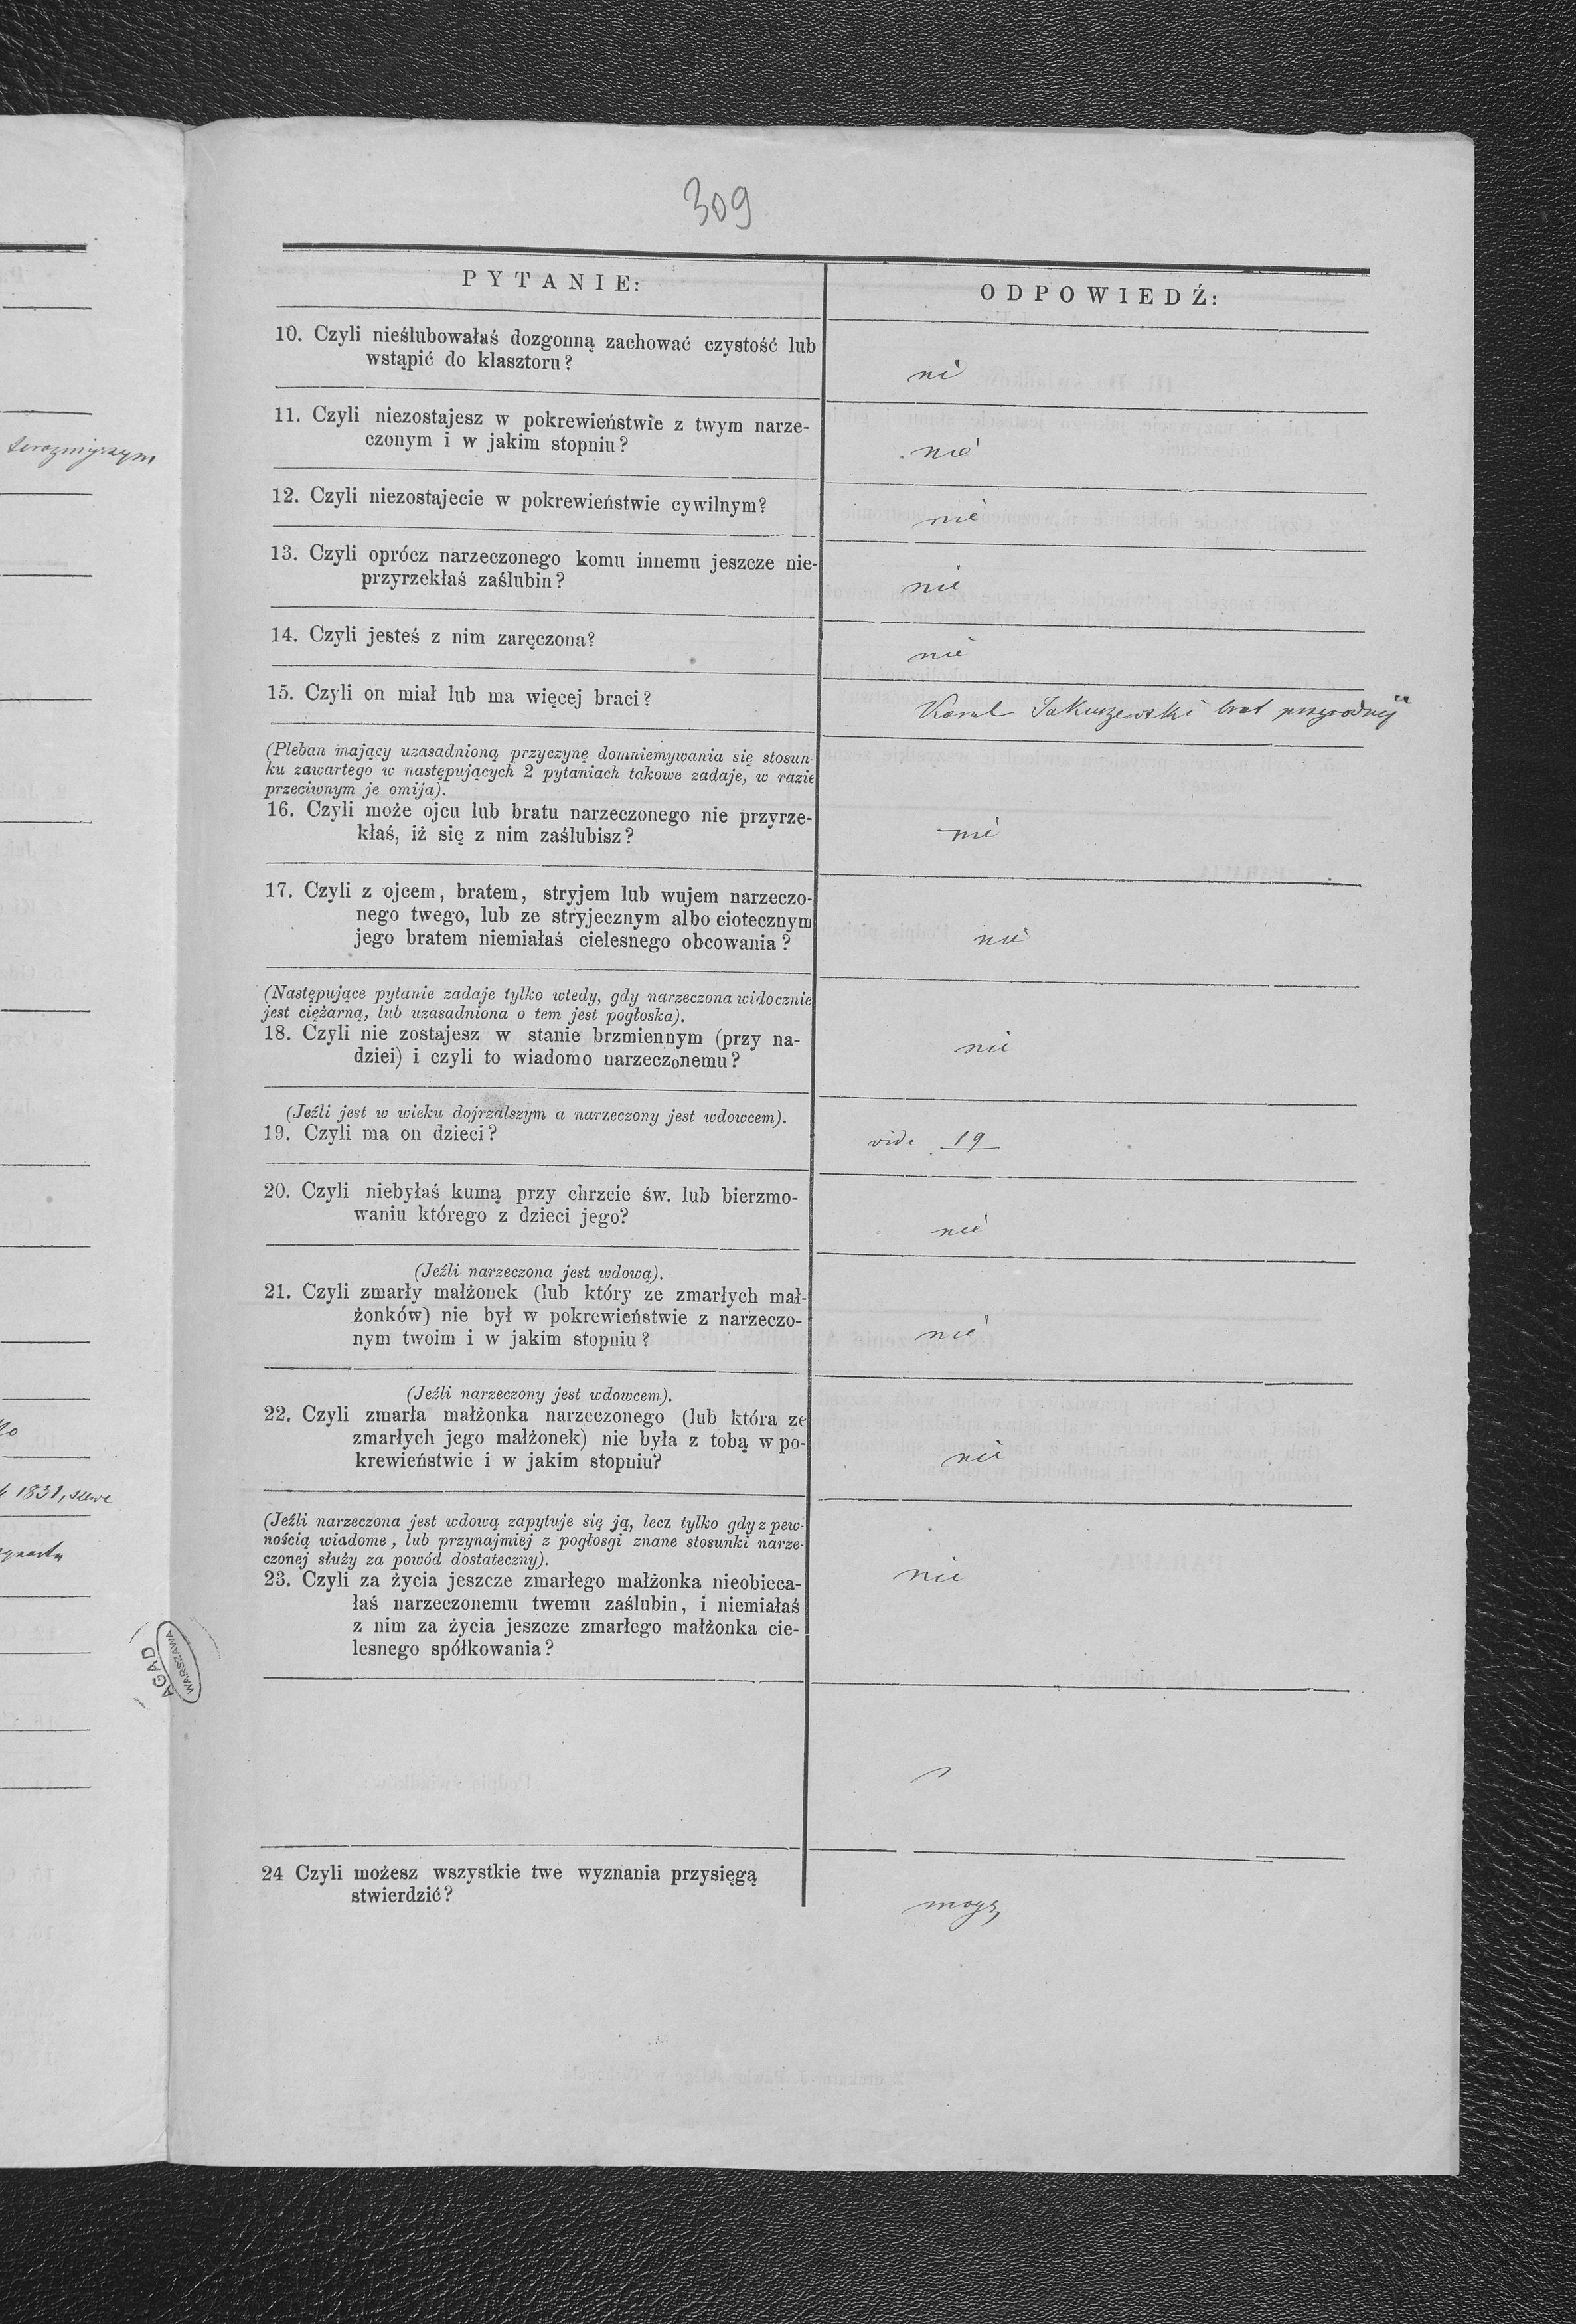 309
PYTANIE:
ODPOWIEDŹ:
10. Czyli nieślubowałaś dozgonną zachować czystość lub
wstąpić do klasztoru?
nie
11. Czyli niezostajesz w pokrewieństwie z twym narze-
czonym i w jakim stopniu?
nie
12. Czyli niezostajecie w pokrewieństwie cywilnym?
nie
13. Czyli oprócz narzeczonego komu innemu jeszcze nie-
przyrzekłaś zaślubin?
nie
14. Czyli jesteś z nim zaręczona?
nie
15. Czyli on miał lub ma więcej braci?
Karol Jakuszewski brat przyrodnij
(Pleban mający uzasadnioną przyczynę domniemywania się stosun-
ku zawartego w następujących 2 pytaniach takowe zadaje, w razie
przeciwnym je omija).
16. Czyli może ojcu lub bratu narzeczonego nie przyrze-
kłaś, iż się z nim zaślubisz?
nie
17. Czyli z ojcem, bratem, stryjem lub wujem narzeczo-
nego twego, lub ze stryjecznym albo ciotecznym
jego bratem niemiałaś cielesnego obcowania?
nie
(Następujące pytanie zadaje tylko wtedy, gdy narzeczona widocznie
jest ciężarną, lub uzasadniona o tem jest pogłoska).
18. Czyli nie zostajesz w stanie brzmiennym (przy na-
dziei) i czyli to wiadomo narzeczonemu?
nie
(Jeźli jest w wieku dojrzalszym a narzeczony jest wdowcem).
19. Czyli ma on dzieci?
vide 19
20. Czyli niebyłaś kumą przy chrzcie św. lub bierzmo-
waniu którego z dzieci jego?
nie
(Jeźli narzeczona jest wdową).
21. Czyli zmarły małżonek (lub który ze zmarłych mał-
żonków) nie był w pokrewieństwie z narzeczo-
nym twoim i w jakim stopniu?
nie
(Jeźli narzeczony jest wdowcem).
22. Czyli zmarła małżonka narzeczonego (lub która ze
zmarłych jego małżonek) nie była z tobą w po-
krewieństwie i w jakim stopniu?
nie
(Jeźli narzeczona jest wdową zapytuje się ją, lecz tylko gdy z pew-
nością wiadome, lub przynajmiej z pogłosgi znane stosunki narze-
czonej służy za powód dostateczny).
23. Czyli za życia jeszcze zmarłego małżonka nieobieca-
łaś narzeczonemu twemu zaślubin, i niemiałaś
z nim za życia jeszcze zmarłego małżonka cie-
lesnego spółkowania?
nie
24 Czyli możesz wszystkie twe wyznania przysięgą
stwierdzić?
mogę
1831,
AGAD
WARSZAWA